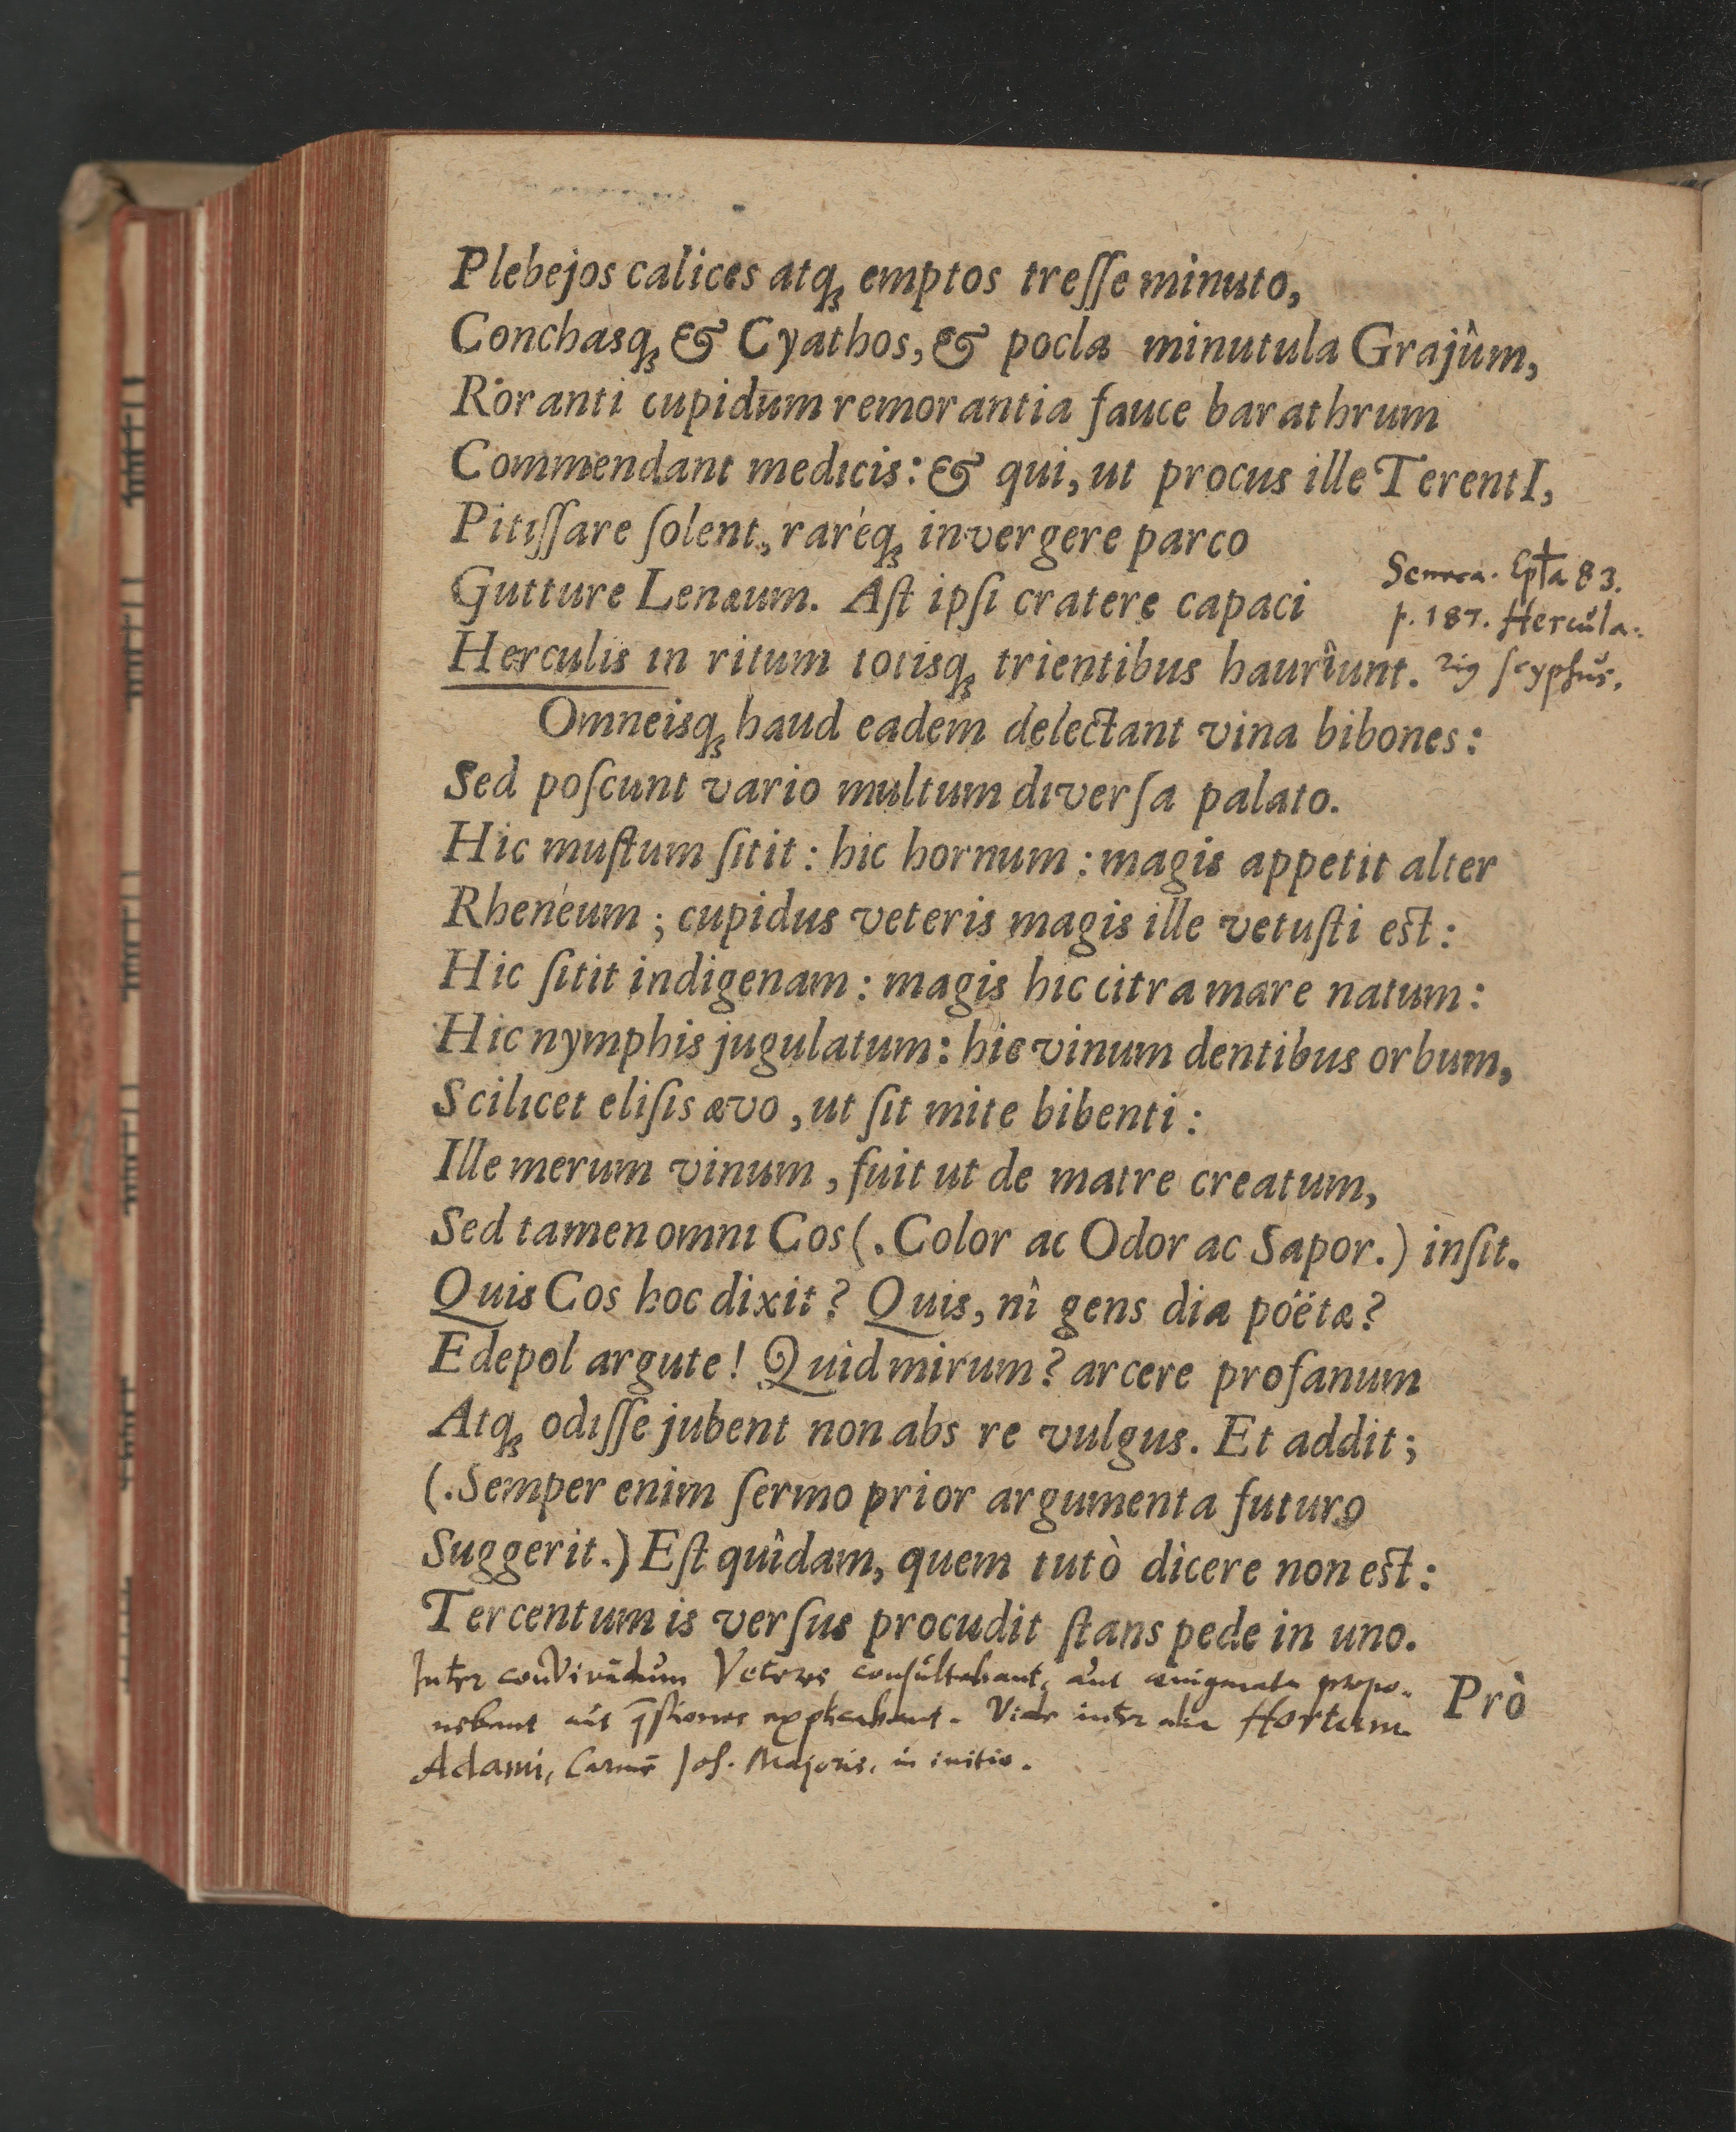 Plebejos calices atq́; emptos treſſe minuto,
Conchasq́; & Cyathos, & pocla minutula Grajûm,
Roranti cupidum remorantia fauce barathrum
Commendant medicis: & qui, ut procus ille TerentI,
Pitiſſare ſolent, raréq; invergere parco
Gutture Lenæum. Aſt ipſi cratere capaci
Seneca. Epta 83.
p. 187. Hercula-
Herculis in ritum totisq́; trientibus haurîunt.
rig ſcyphus.
Omneisq́; haud eadem delectant vina bibones:
Sed poſcunt vario multum diverſa palato.
Hic muſtum ſitit: hic hornum: magis appetit alter
Rhenéum; cupidus veteris magis ille vetuſti est:
Hic ſitit indigenam: magis hic citra mare natum:
Hic nymphis jugulatum: hic vinum dentibus orbum,
Scilicet eliſis ævo, ut ſit mite bibenti:
Ille merum vinum, fuit ut de matre creatum,
Sed tamen omni Cos (. Color ac Odor ac Sapor.) inſit.
Quis Cos hoc dixit? Quis, nî gens dia poëtæ?
Edepol argute! Quid mirum? arcere profanum
Atq́; odiſſe jubent non abs re vulgus. Et addit;
(. Semper enim ſermo prior argumenta futuro
Suggerit.) Eſt quîdam, quem tutò dicere non est:
Tercentum is verſus procudit ſtans pede in uno.
Inter convivandum Veteres conſultabant, aut ænigmata propo-
nebant aut q̄ſtiones explicabant. Vide inter alia Hortum
Adami, Carmē Joh. Majoris, in initio.
Prò